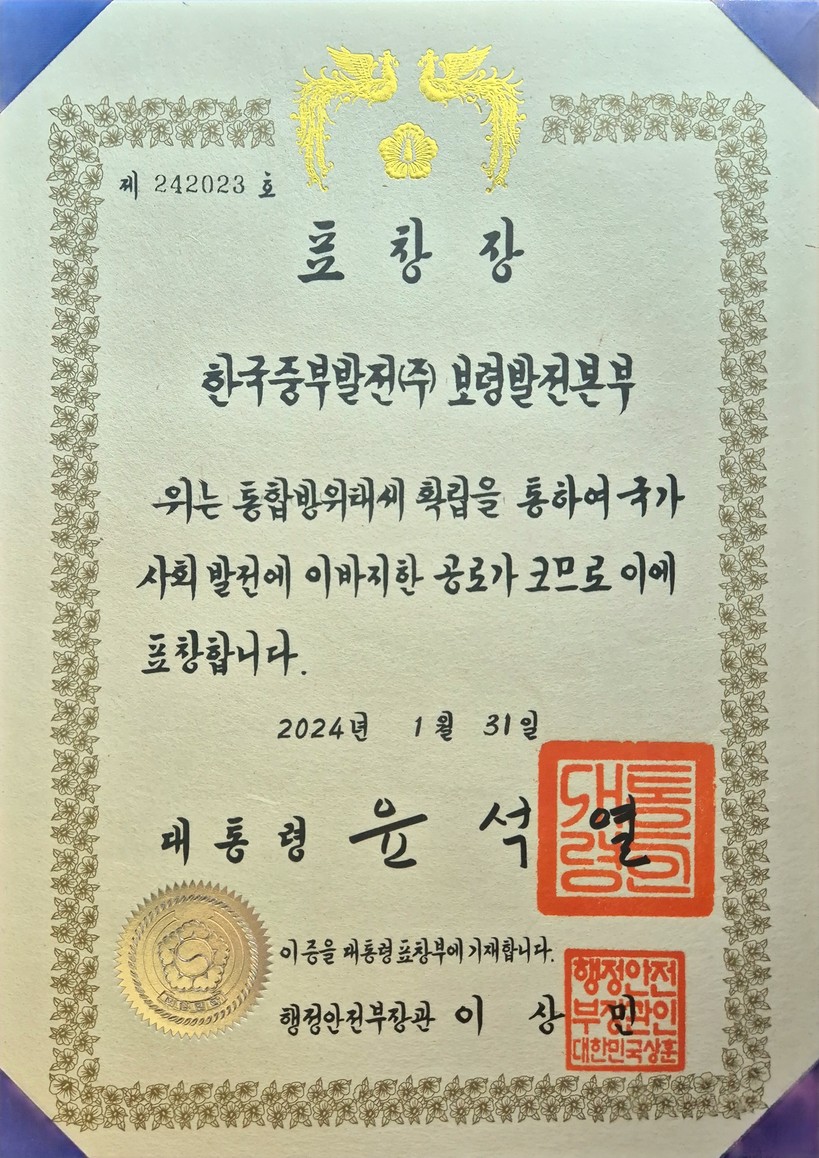 제 242023 호
표 창 장
한국중부발전(주) 보령발전본부
위는 통합방위태세 확립을 통하여 국가
사회 발전에 이바지한 공로가 크므로 이에
표창합니다.
2024년 1월 31일
대통령 윤석열
대통령인
이 증을 대통령 표창부에 기재합니다.
행정안전부장관 이상민
행정안전
부장관인
대한민국상훈